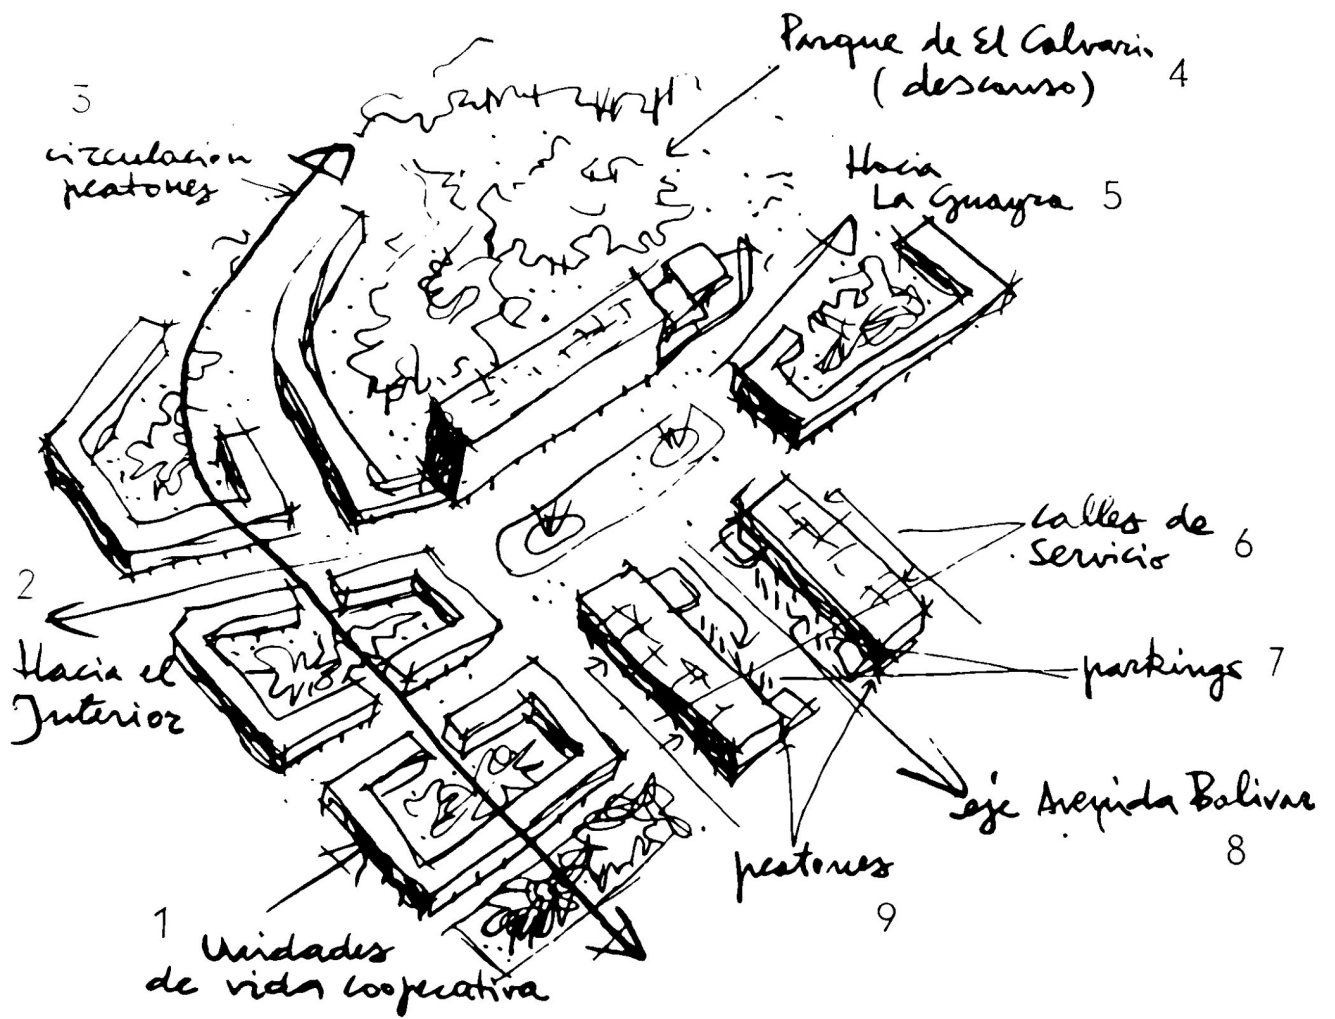 Parque de El Calvario
(descanso)
4
3
circulacion
peatones
Hacia
La Guayra
5
calles de
servicio
6
2
Hacia el
Interior
parkings
7
eje Avenida Bolivar
8
peatones
9
1
Unidades
de vida cooperativa